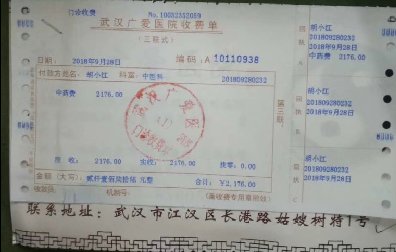 门诊收费
No.10032352059
武汉广爱医院收费单
(三联式)
日期: 2018年9月28日
编码: A 10110938
付款方姓名: 胡小红 科室: 中医科 201809280232
中药费 2176.00
第三联
应收: 2176.00 实收: 2176.00 找零: 0.00
金额(大写): 贰仟壹佰柒拾陆 元整 合计: ¥2,176.00
收款员: 机制号: (盖收费专用章有效)
胡小红
201809280232
中药费
2018年9月28日
胡小红
201809280232
2018年9月28日
胡小红
201809280232
2018年9月28日
联系地址: 武汉市江汉区长港路姑嫂树特1号